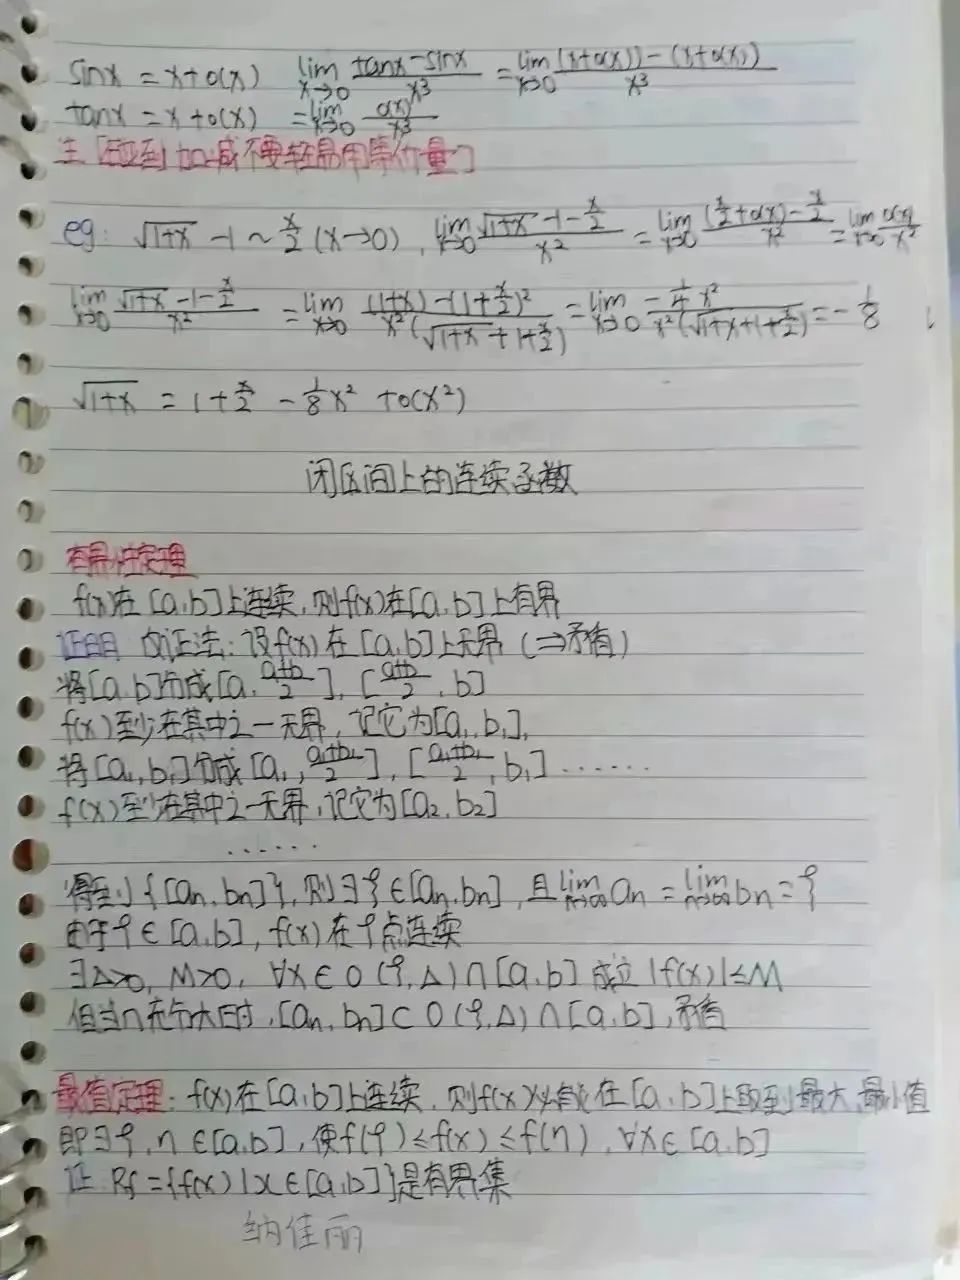 sinx = x+o(x) lim x→0 (tanx-sinx)/x³ = lim x→0 ((x+o(x))-(x+o(x)))/x³
tanx = x+o(x) = lim x→0 o(x)/x³
注 [碰到加减不要轻易用等价量]
eg: √(1+x) -1 ~ x/2 (x→0), lim x→0 (√(1+x) -1-x/2)/x² = lim x→0 ((x/2+o(x))-x/2)/x² = lim x→0 o(x)/x²
lim x→0 (√(1+x) -1-x/2)/x² = lim x→0 ((1+x)-(1+x/2)²)/(x²(√(1+x)+1+x/2)) = lim x→0 (-1/4 x²)/(x²(√(1+x)+1+x/2)) = -1/8
√(1+x) = 1+x/2 - 1/8 x² +o(x²)
闭区间上的连续函数
有界性定理
f(x)在[a,b]上连续,则f(x)在[a,b]上有界
证明 反证法:设f(x)在[a,b]上无界(⇒矛盾)
将[a,b]分成[a,(a+b)/2],[(a+b)/2,b]
f(x)至少在其中之一无界,记它为[a₁,b₁],
将[a₁,b₁]分成[a₁,(a₁+b₁)/2],[(a₁+b₁)/2,b₁]……
f(x)至少在其中之一无界,记它为[a₂,b₂]
……
得到{[an,bn]},则∃ξ∈[an,bn],且lim n→∞ an = lim n→∞ bn = ξ
由于ξ∈[a,b],f(x)在ξ点连续
∃Δ>0, M>0, ∀x∈O(ξ,Δ)∩[a,b]成立|f(x)|≤M
但当n充分大时,[an,bn]⊂O(ξ,Δ)∩[a,b],矛盾
最值定理:f(x)在[a,b]上连续,则f(x)必能在[a,b]上取到最大,最小值
即∃ξ,η∈[a,b],使f(ξ)≤f(x)≤f(η),∀x∈[a,b]
证:Rf={f(x)|x∈[a,b]}是有界集
纳佳丽